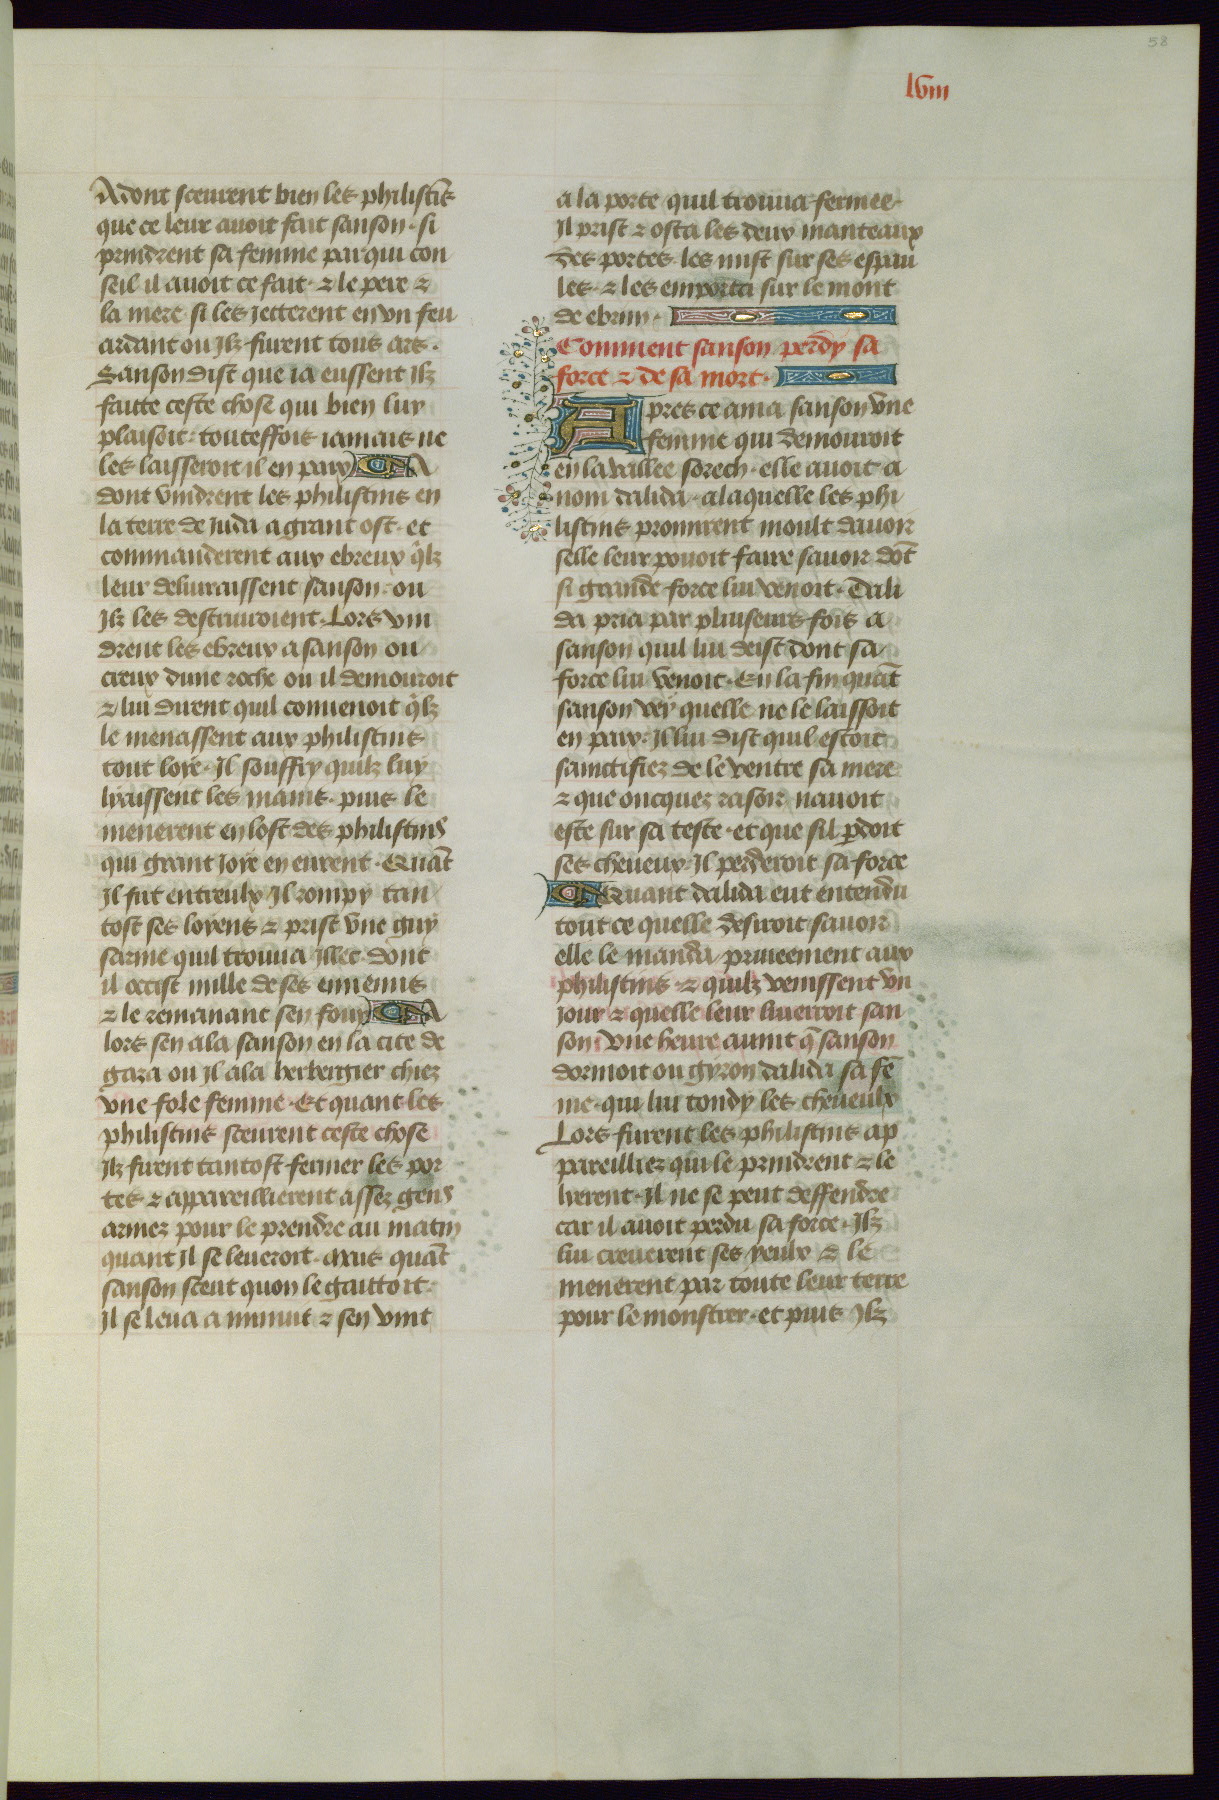 58
lviii
Adont sceurent bien les philistīs
que ce leur auoit fait sanson. si
prindrent sa femme par qui con
seil il auoit ce fait. ⁊ le pere ⁊
la mere si les jetterent en vn feu
ardant ou jlz furent tous ars.
Sanson dist que ia eussent jlz
faitte ceste chose qui bien luy
plaisoit: touteffois iamais ne
les laisseroit il en paix ¶ A
dont vindrent les philistins en
la terre de juda a grant ost. et
commanderent aux ebreux q̄lz
leur deliuraissent sanson. ou
jlz les destruiroient. Lors vin
drent les ebreux a sanson ou
creux dune roche ou il demouroit
⁊ lui dirent quil conuenoit q̄lz
le menassent aux philistins
tout loye. Il souffry quilz luy
lyaissent les mains. puis le
menerent en lost des philistins
qui grant joye en eurent. Quāt
jl fut entreulx jl rompy tan
tost ses loyens ⁊ prist vne guy
sarme quil trouua jllec. dont
il occist mille de ses ennemis
⁊ le remanant sen fouy ¶ A
lors sen ala sanson en la cite de
gaza ou jl ala herbergier chiez
vne fole femme. Et quant les
philistins sceurent ceste chose
jlz firent tantost fermer les por
tes ⁊ appareillierent assez gens
armez pour le prendre au matin
quant jl se leueroit. Mais quāt
sanson sceut quon le gaittoit.
jl se leua a minuit ⁊ sen vint
a la porte quil trouua fermee.
jl prist ⁊ osta les deux manteaux
des portes. les mist sur ses espau
les. ⁊ les emporta sur le mont
de ebrim.
Comment sanson perdy sa
force ⁊ de sa mort.
Apres ce ama sanson vne
femme qui demouroit
en la vallee sorech. elle auoit a
nom dalida. a laquelle les phi
listins promirent moult dauoir
selle leur pouoit faire sauoir dōt
si grande force lui venoit. Dali
da pria par pluiseurs fois a
sanson quil lui deist dont sa
force lui venoit. En la fin quāt
sanson vey quelle ne le laissoit
en paix. Il lui dist quil estoit
saintifiez de le ventre sa mere
⁊ que oncquez rasoir nauoit
este sur sa teste. et que sil p̄doit
ses cheueux. Il perderoit sa force
¶ Quant dalida eut entendu
tout ce quelle desiroit sauoir
elle le manda priueement aux
philistins. ⁊ quilz venissent vn
jour ⁊ quelle leur liuerroit san
son. Vne heure auint q̄ sanson
dormoit ou gyron dalida sa fē
me. qui lui tondy les cheueulx
Lors furent les philistins ap
pareilliez qui le prindrent ⁊ le
lierent. Il ne se peut deffendre
car il auoit perdu sa force. Ilz
lui creuerent ses yeulx ⁊ le
menerent par toute leur terre
pour le monstrer. et puis jlz